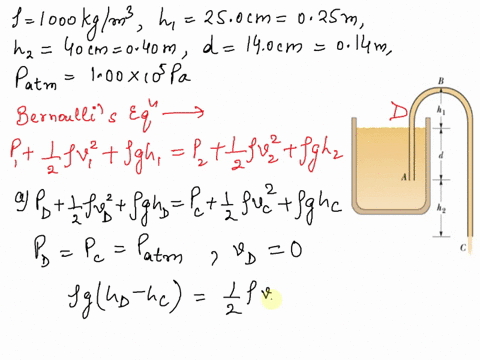 ρ = 1000 kg/m³, h₁ = 25.0cm = 0.25m,
h₂ = 40cm = 0.40m, d = 14.0cm = 0.14m,
Patm = 1.00 × 10⁵ Pa
Bernoulli's Eqⁿ →
P₁ + 1/2 ρv₁² + ρgh₁ = P₂ + 1/2 ρv₂² + ρgh₂
a) P_D + 1/2 ρv_D² + ρgh_D = P_C + 1/2 ρv_C² + ρgh_C
P_D = P_C = Patm , v_D = 0
ρg(h_D - h_C) = 1/2 ρ v
B
D
h₁
d
A
h₂
C